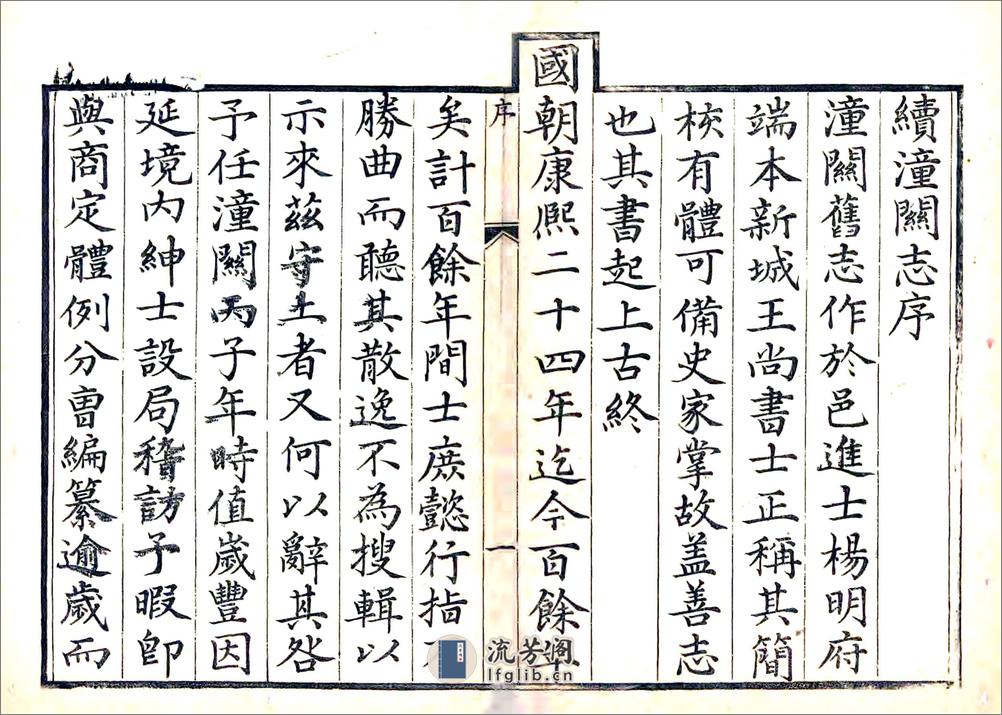 續潼關志序
潼關舊志作於邑進士楊明府
端本新城王尚書士正稱其簡
核有體可備史家掌故盖善志
也其書起上古終
國朝康熙二十四年迄今百餘
序
一
矣計百餘年間士庶懿行指
勝曲而聽其散逸不為搜輯以
示來茲守土者又何以辭其咎
予任潼關丙子年時值歲豐因
延境内紳士設局稽訪予暇卽
與商定體例分曹編纂逾歲而
流芳阁
lfglib.cn